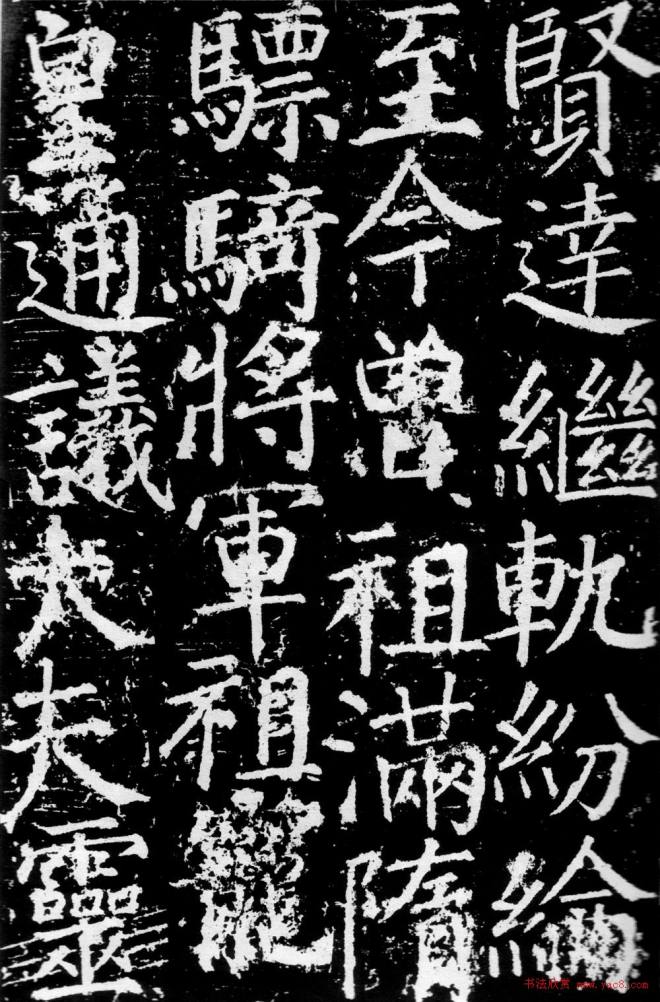 賢達繼軌紛綸
至今曾祖滿隋
驃騎將軍祖寵
皇通議大夫靈
书法欣赏 www.yac8.com